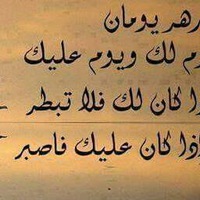 يومان
لك ويوم عليك
كان لك فلا تبطر
إذا كان عليك فاصبر